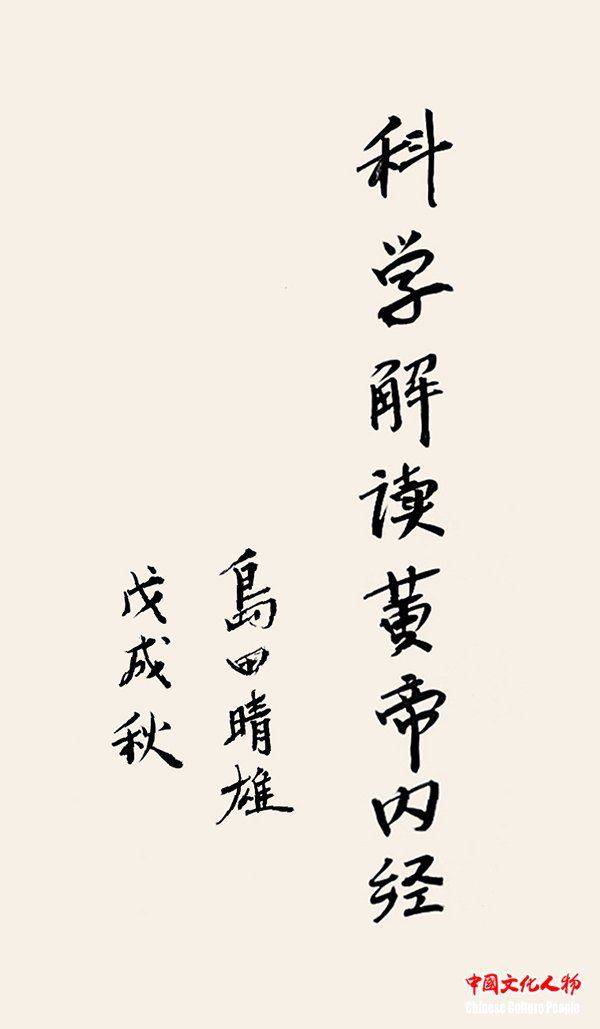 科学解读黄帝内经
島田晴雄
戊戌秋
中國文化人物
Chinese Culture People